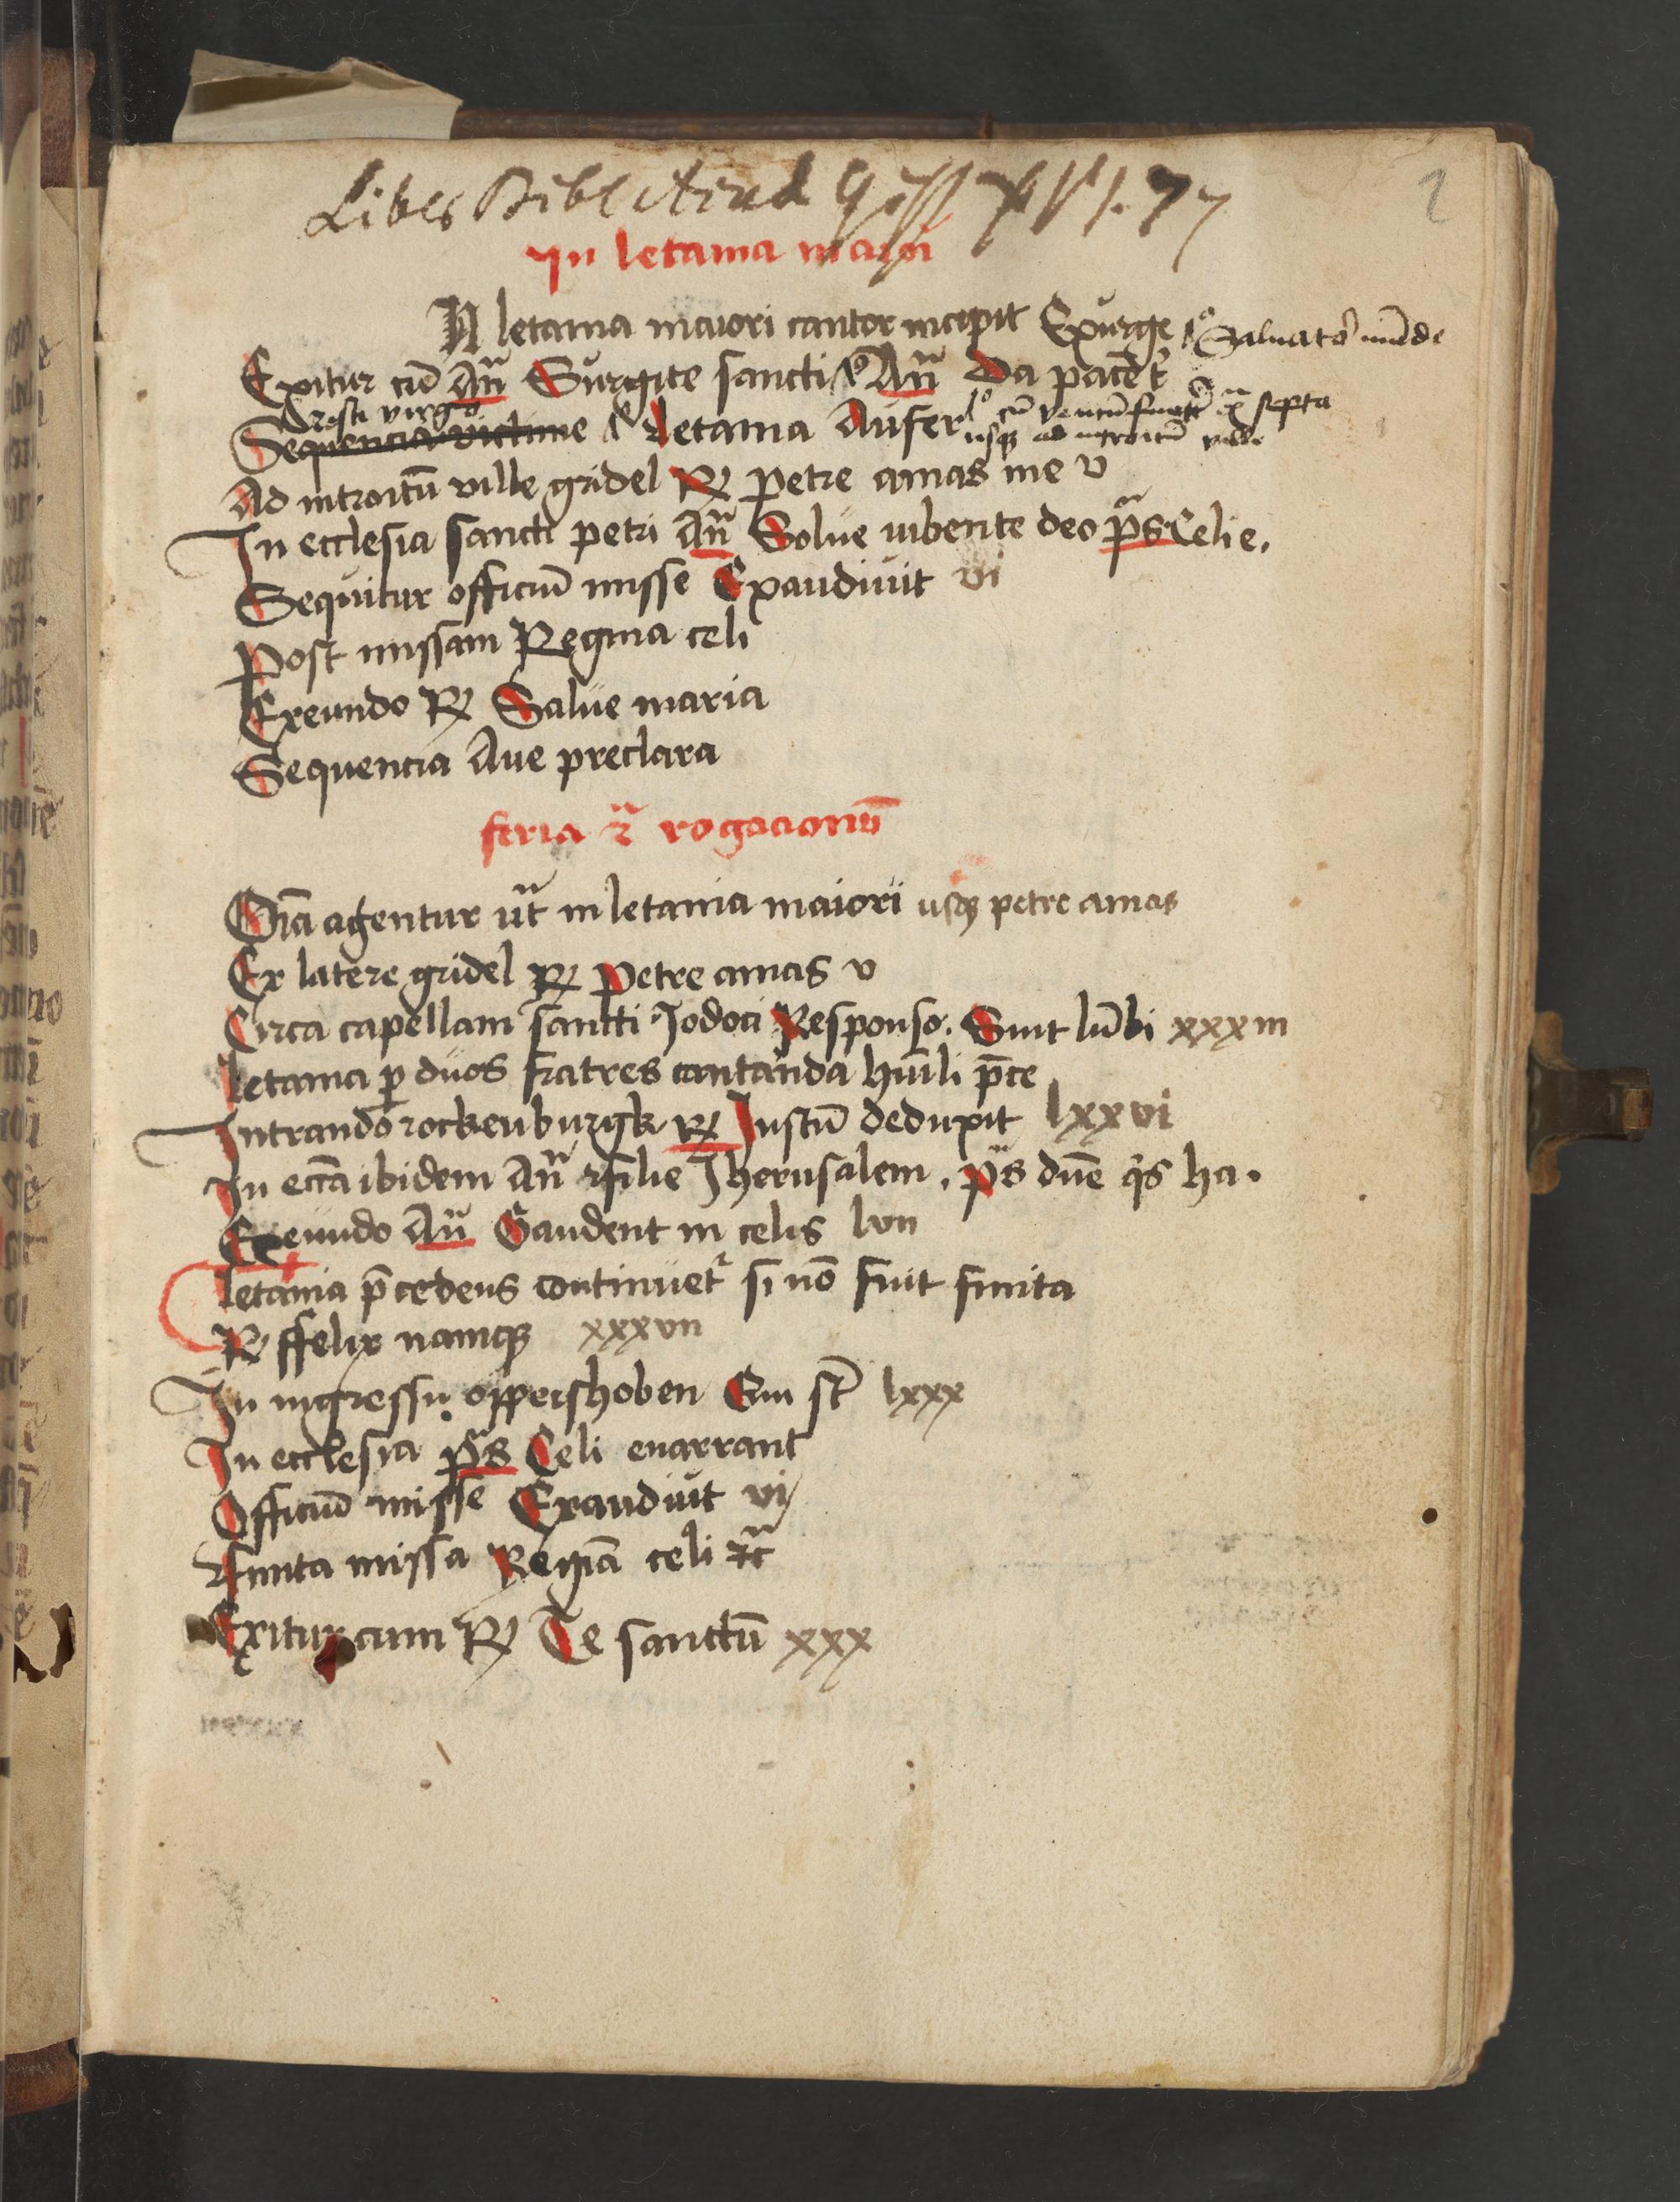 Liber Bibl Acad Giss XVI. 77
2
In letania maiori
IN letania maiori cantor incepit Exurge Saluator mūde
Exitur cū Añ Surgite sancti Añ Da pacē
virgo
Sequencia victime letania Aufer
usqȝ ad introitū ville
Ad introitū ville gridel R Petre amas me v
In ecclesia sancti petri Añ Solue iubente deo p̄s Celi e.
Sequitur officiū misse Exaudiuit vi
Post missam Regina celi
Exeundo R Salue maria
Sequencia Aue preclara
feria 2ᵃ rogacionū
Oīa agentur ut in letania maiori usqȝ petre amas
Ex latere gridel R Petre amas v
Circa capellam sancti Jodoci Responso. Sint lūbi xxxiii
letania p duos fratres cantanda hūili p̄ce
Intrando rockenburgk R Iustū deduxit lxxvi
In ecc̄a ibidem Añ filie Jherusalem. p̄s dn̄e q̄s ha.
Exeundo Añ Gaudent in celis lvii
letania p̄cedens continuet si nō fuit finita
R ffelix namqȝ xxxvii
In ingressu oppershoben Qui st̄ lxxx
In ecclesia p̄s Celi enarrant
Officiū misse Exaudiuit vi
Finita missa Regīa celi ⁊c̄
Exitur cum R Te sanctū xxx